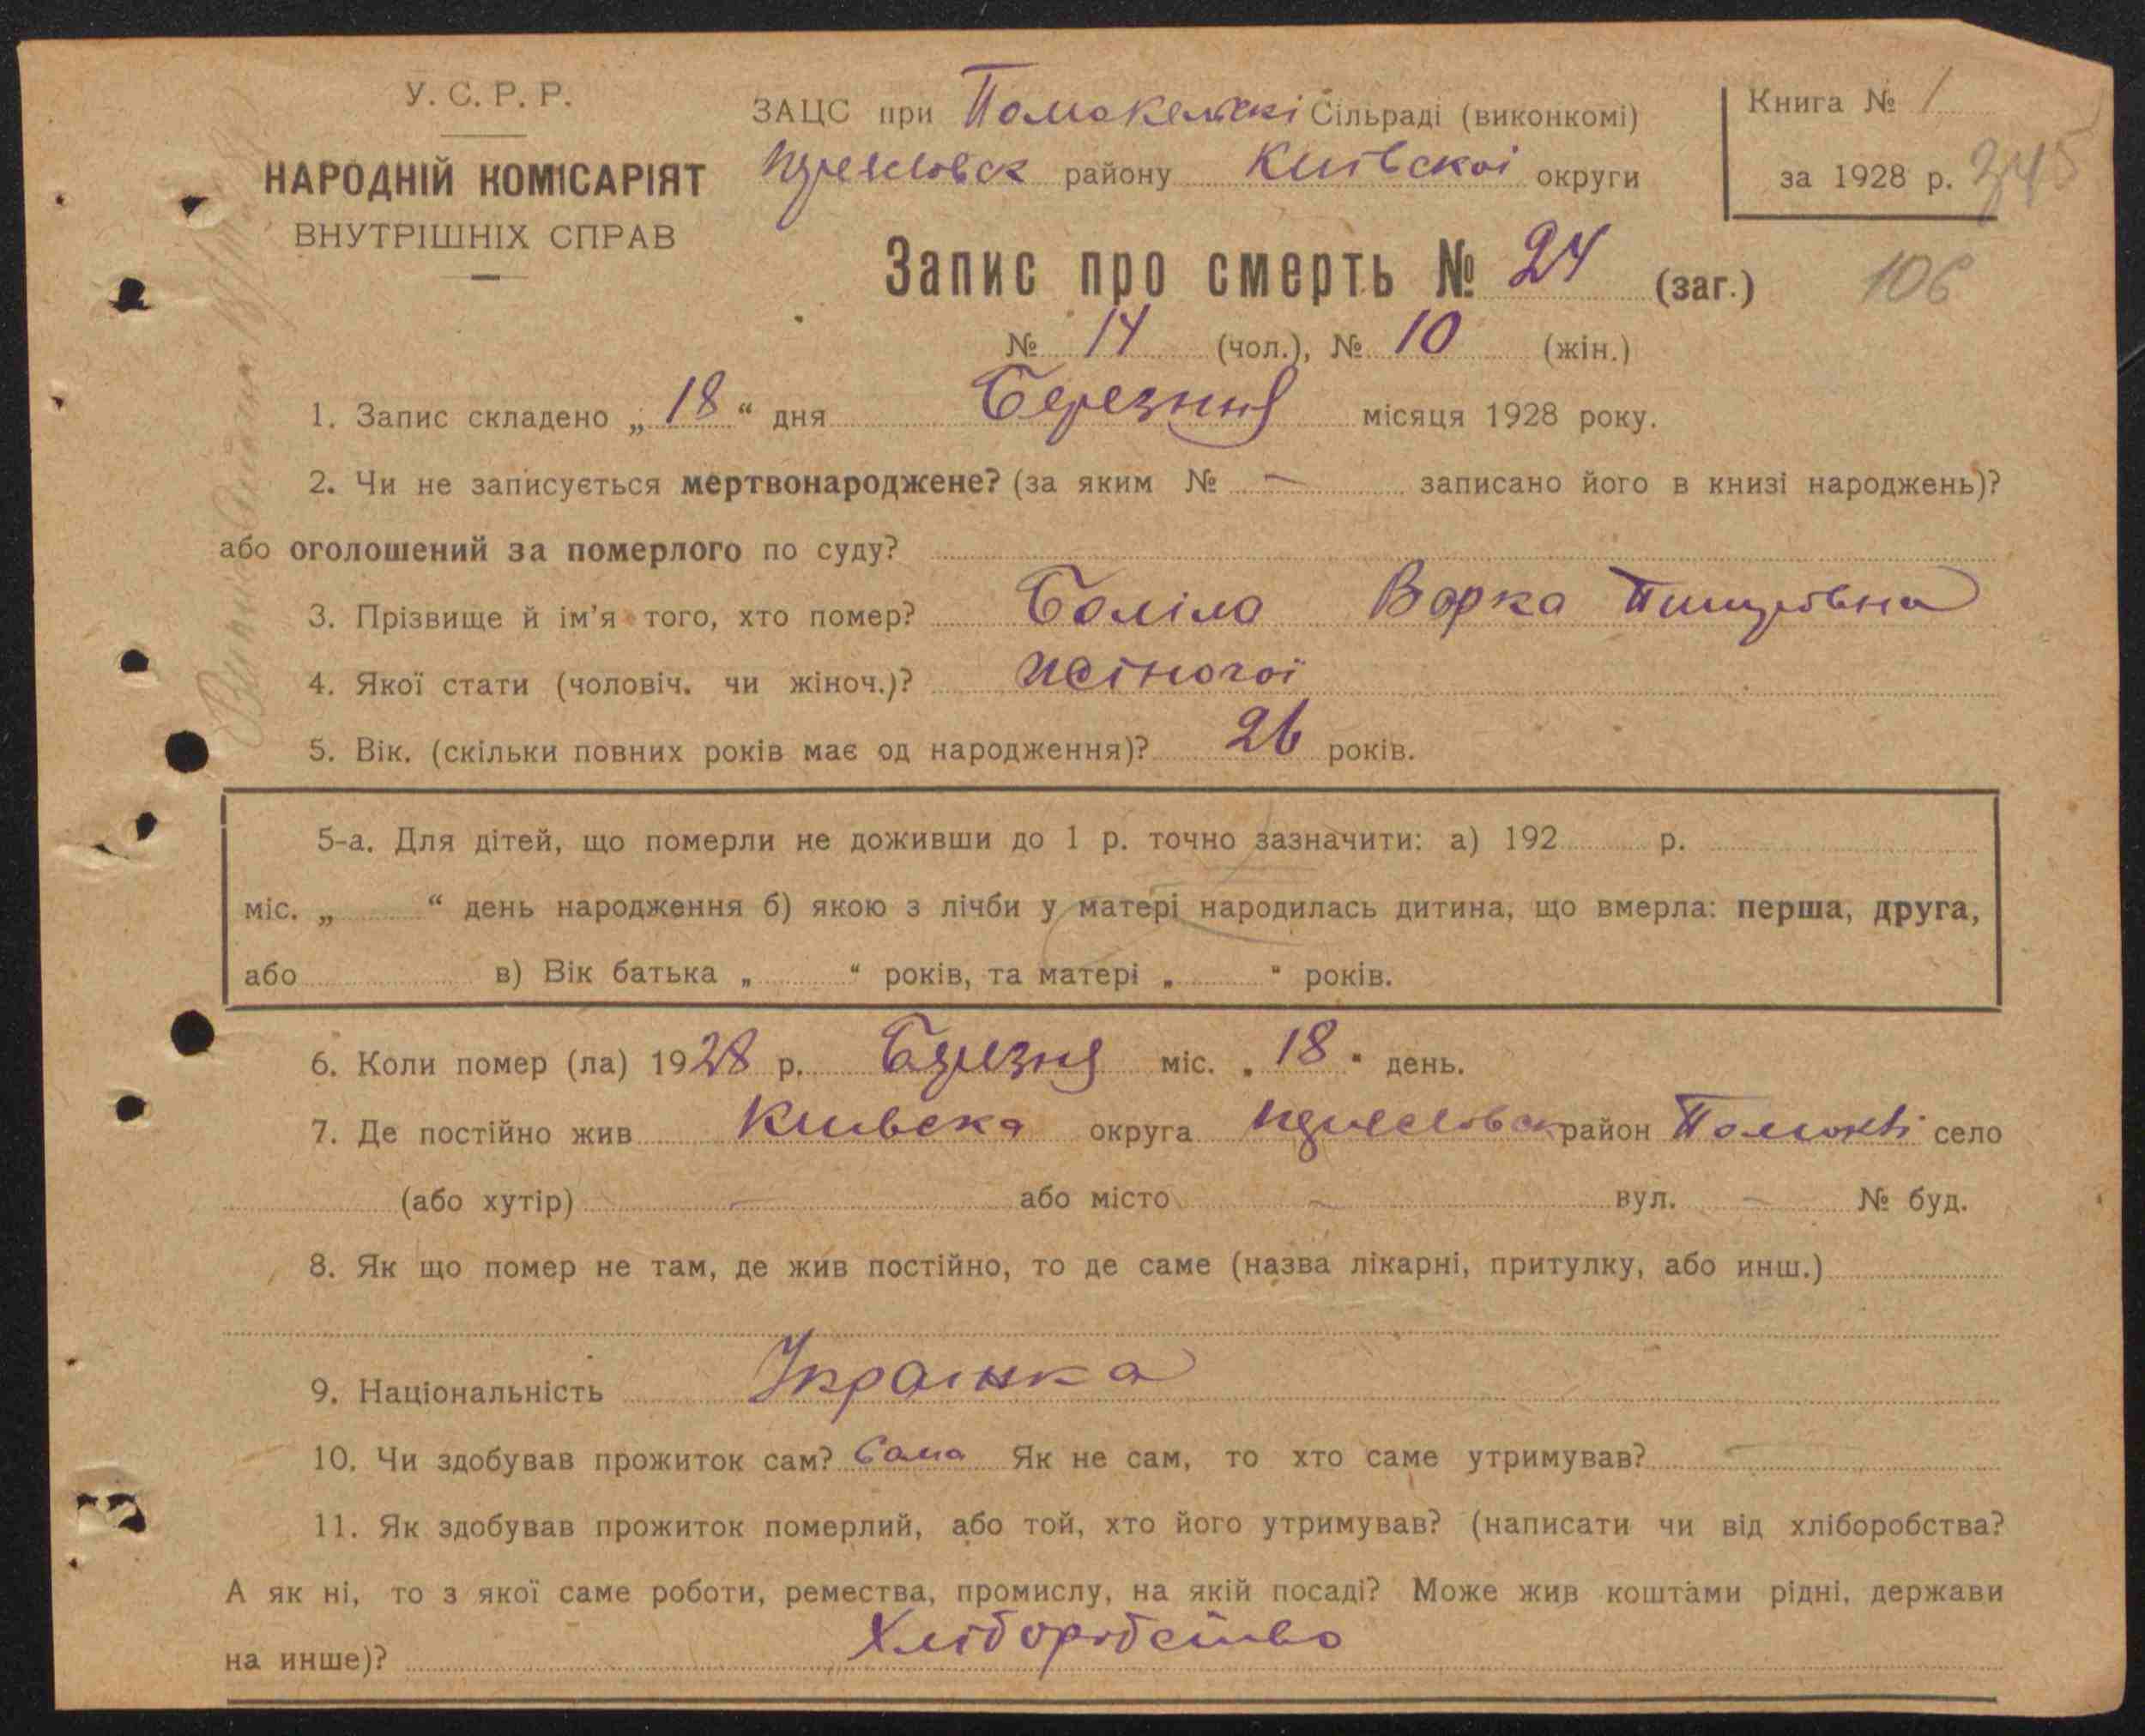 У. С. Р. Р.
НАРОДНІЙ КОМІСАРІЯТ
ВНУТРІШНІХ СПРАВ
ЗАЦС при Помокельскі Сільраді (виконкомі)
району Київскоі округи
Книга № 1
за 1928 р. 345
Запис про смерть № 24 (заг.) 106
№ 14 (чол.), № 10 (жін.)
1. Запис складено „ 18 “ дня Березння місяця 1928 року.
2. Чи не записується мертвонароджене? (за яким № — записано його в книзі народжень)?
або оголошений за померлого по суду?
3. Прізвище й ім'я того, хто помер? Боліла Ворка
4. Якої стати (чоловіч. чи жіноч.)? жіночої
5. Вік. (скільки повних років має од народження)? 26 років.
5-а. Для дітей, що померли не доживши до 1 р. точно зазначити: а) 192 р.
міс. „ “ день народження б) якою з лічби у матері народилась дитина, що вмерла: перша, друга,
або в) Вік батька „ “ років, та матері „ “ років.
6. Коли помер (ла) 1928 р. Березня міс. „ 18 “ день.
7. Де постійно жив Киівска округа район село
(або хутір) — або місто — вул. — № буд.
8. Як що помер не там, де жив постійно, то де саме (назва лікарні, притулку, або инш.)
9. Національність Украінка
10. Чи здобував прожиток сам? Сама Як не сам, то хто саме утримував? —
11. Як здобував прожиток померлий, або той, хто його утримував? (написати чи від хліборобства?
А як ні, то з якої саме роботи, ремества, промислу, на якій посаді? Може жив коштами рідні, держави
на инше)? Хліборобство